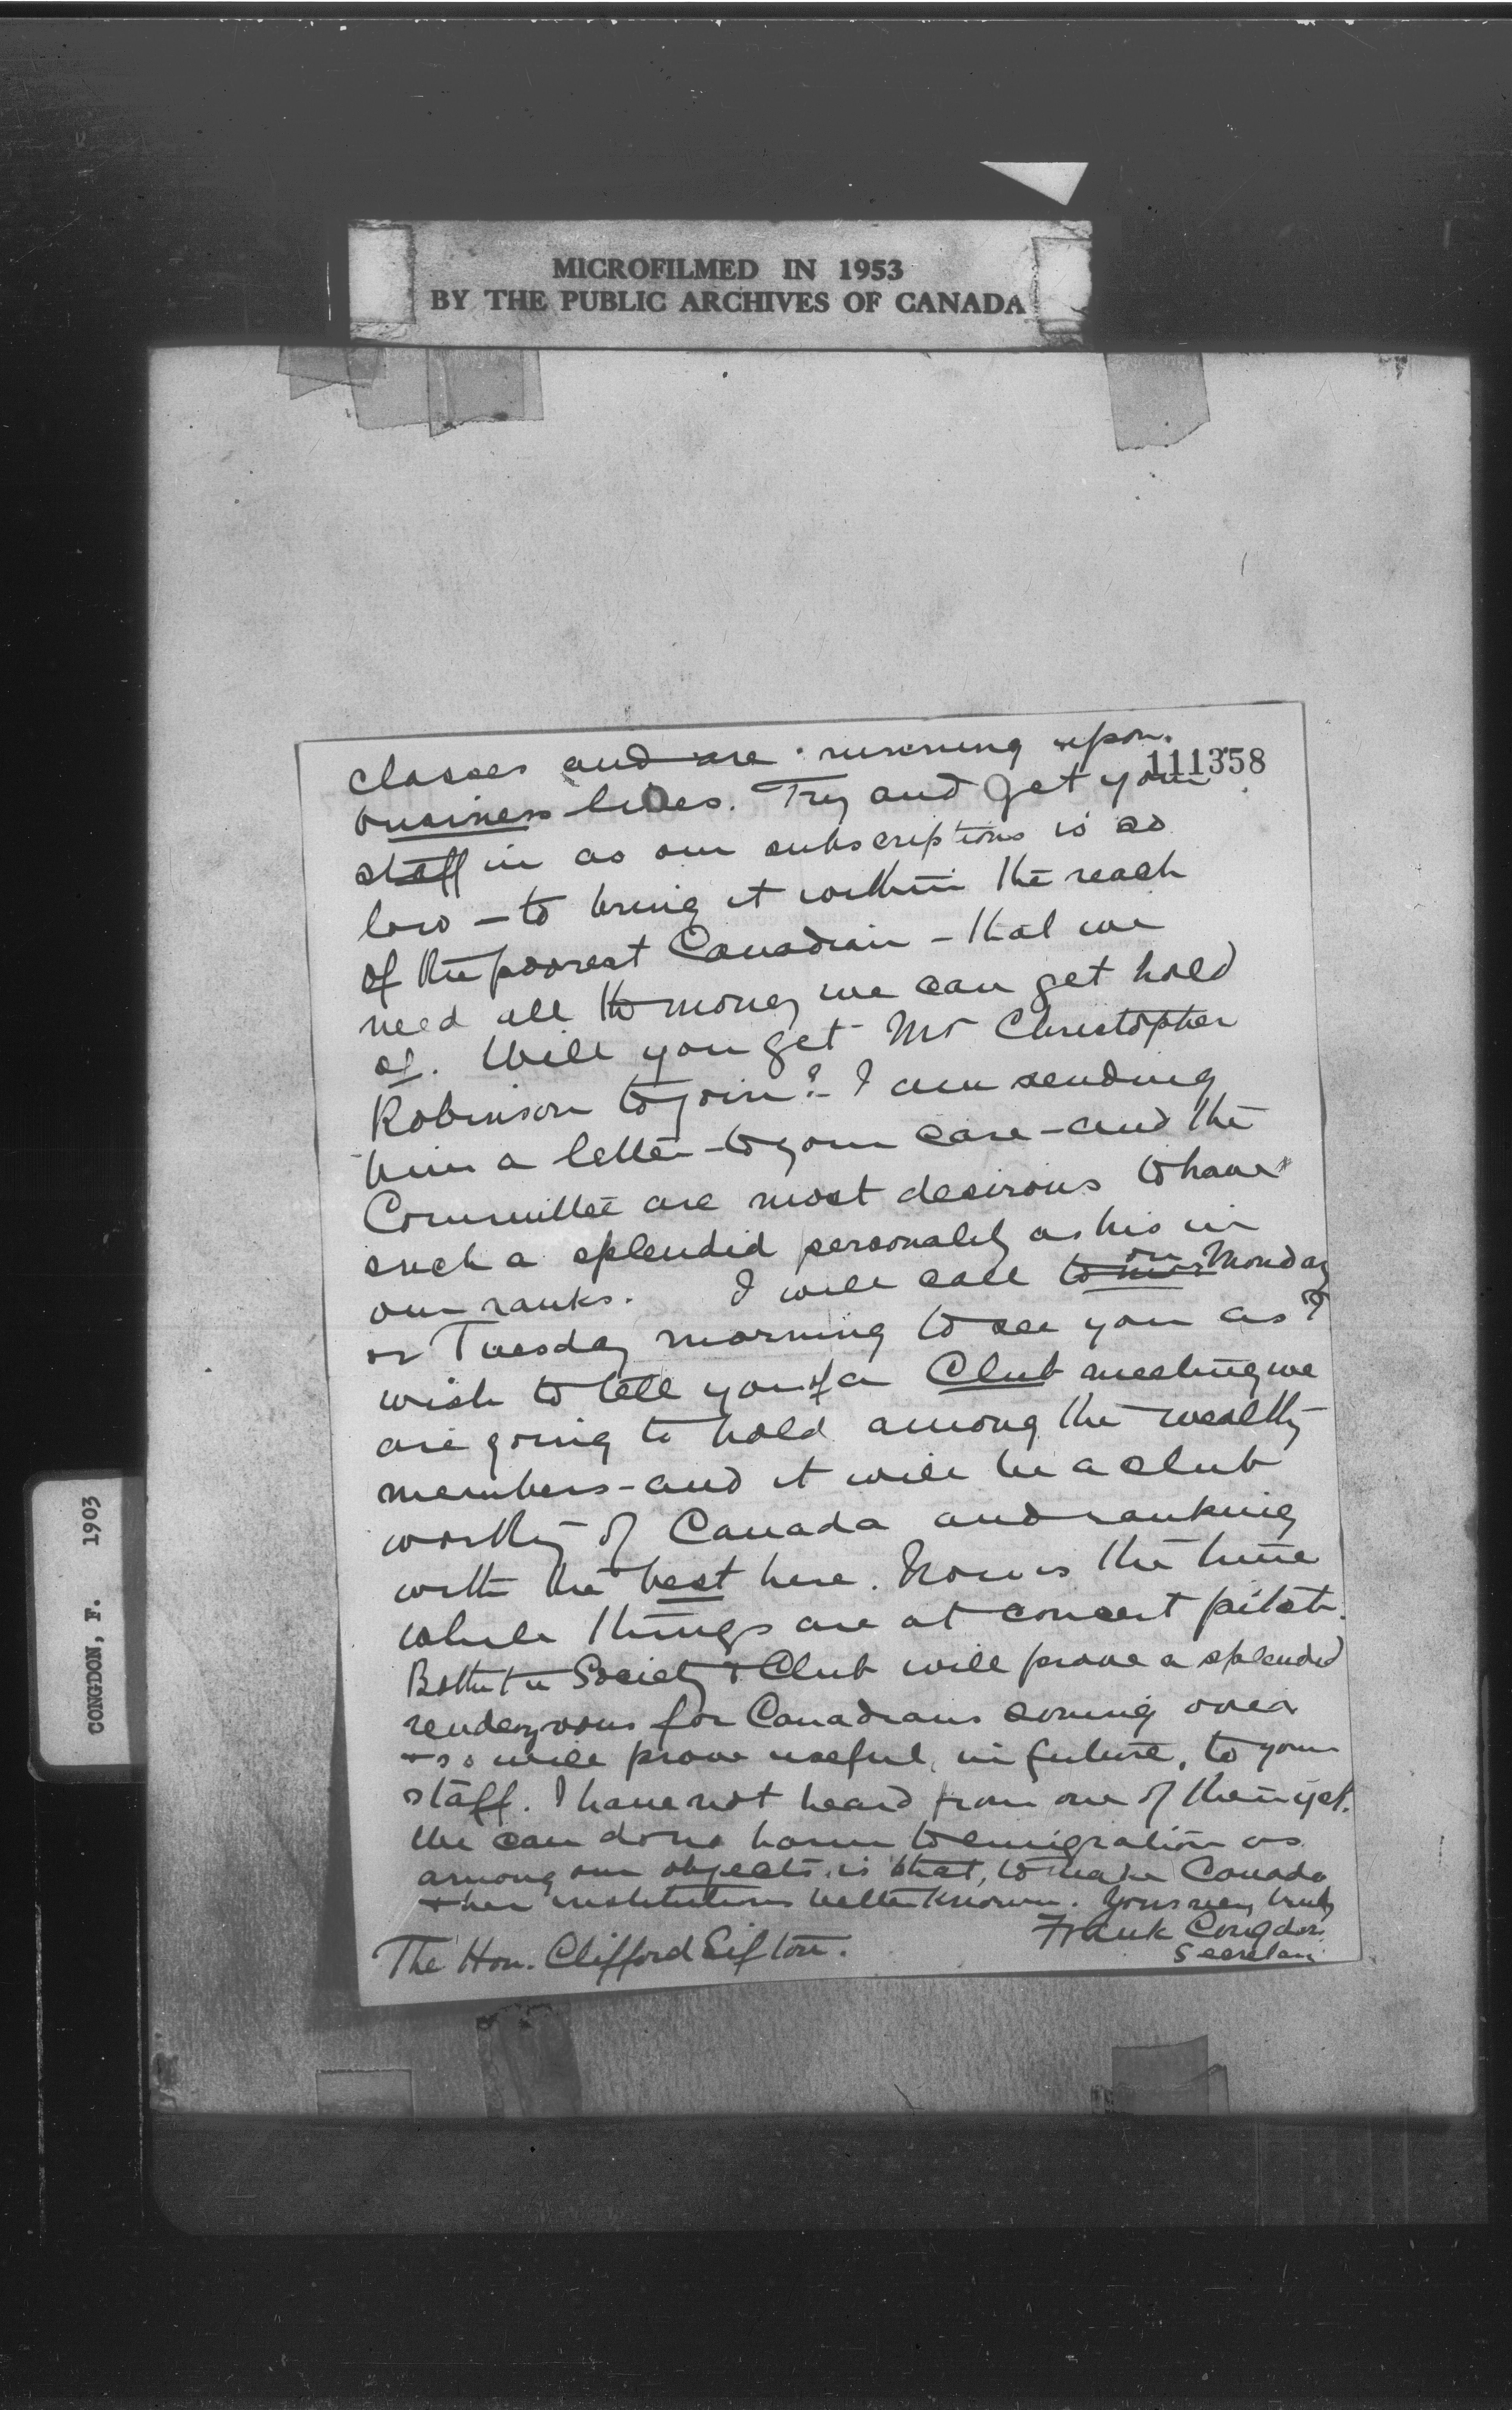 MICROFILMED IN 1953
BY THE PUBLIC ARCHIVES OF CANADA
111358
classes and are running upon
business lines. Try and get your
staff in as our subscriptions is so
low – to bring it within the reach
of the poorest Canadian – that we
need all the money we can get hold
of. Will you get Mr Christopher
Robinson to join? I am sending
him a letter – to your care – and the
Committee are most desirous to have
such a splendid personality as his in
our ranks. I will call on Monday
or Tuesday morning to see you as I
wish to tell you of a Club meeting we
are going to hold among the wealthy
members – and it will be a club
worthy of Canada and ranking
with the best here. Now is the time
while things are at concert pitch.
Both the Society & Club will prove a splendid
rendezvous for Canadians coming over
& so will prove useful, in future, to your
staff. I have not heard from one of them yet.
We can do no harm to emigration as
among our objects is that, to make Canada
& her institutions better known. Yours very truly
Frank Congdon
Secretary
The Hon. Clifford Sifton.
CONGDON, F. 1903